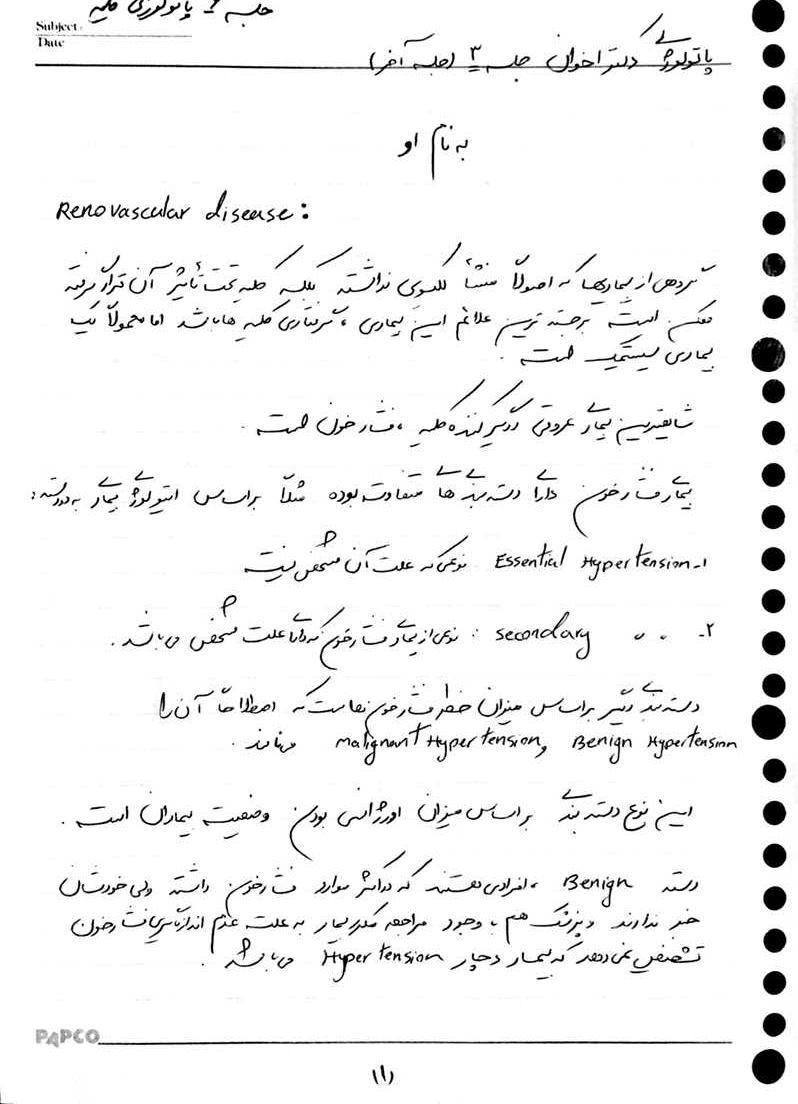 جلسه 3 پاتولوژی کلیه
Subject:
Date
پاتولوژی دکتر اخوان جلسه ۳ (جلسه آخر)
به نام او
Renovascular disease:
گروهی از بیماریها که اصولاً منشأ کلیوی نداشته بلکه کلیه تحت تأثیر آن قرار گرفته
ممکن است برجسته ترین علائم این بیماری، گرفتاری کلیه ها باشد اما معمولاً یک
بیماری سیستمیک است.
شایعترین بیماری عروقی درگیر کننده کلیه، فشار خون است.
بیماری فشار خون دارای دسته بندی های متفاوت بوده مثلاً براساس اتیولوژی بیماری به دو دسته:
۱- Essential Hypertension نوعی که علت آن مشخص نیست
۲- " " secondary : نوعی از بیماری فشار خون که دارای علت مشخص می باشد.
دسته بندی دیگر براساس میزان خطر فشار خون هاست که اصطلاحاً آن را
Benign Hypertension و malignant Hypertension می نامند.
این نوع دسته بندی براساس میزان اورژانسی بودن وضعیت بیماران است.
دسته Benign، افرادی هستند که در اکثر موارد فشار خون داشته ولی خودشان
خبر ندارند و پزشک هم با وجود مراجعه مکرر بیمار به علت عدم اندازه گیری فشار خون
تشخیص نمی دهد که بیمار دچار Hypertension می باشد.
PAPCO
(۱)